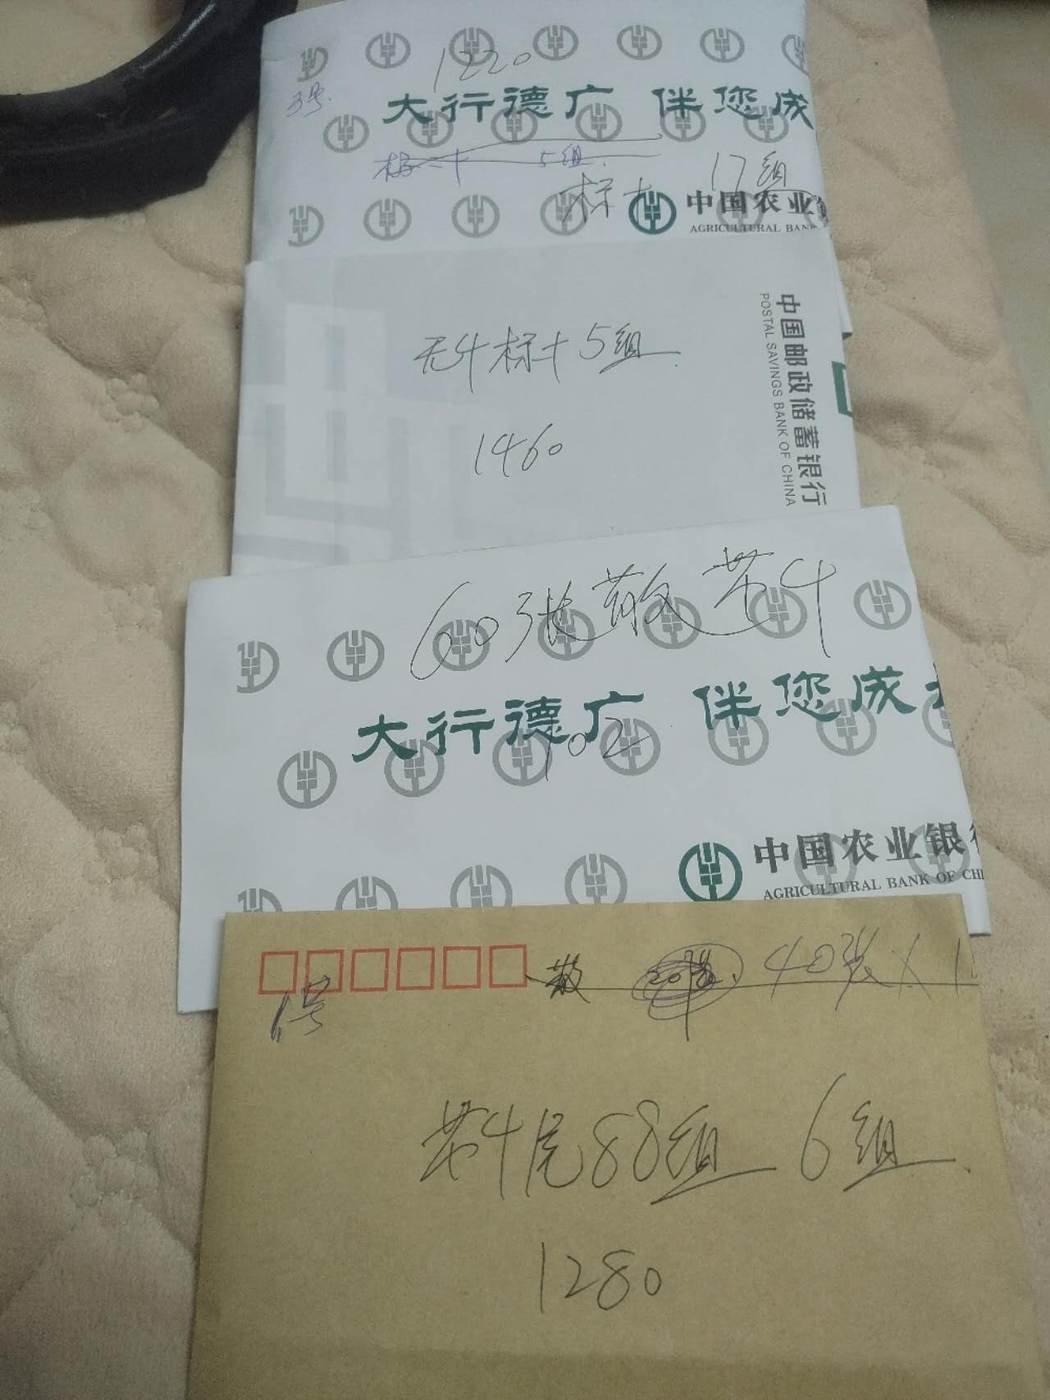 1220
3号
大行德广 伴您成
标十 5组
17组
标十
中国农业银
AGRICULTURAL BANK
无4标十5组
1460
中国邮政储蓄银行
POSTAL SAVINGS BANK OF CHINA
60张散带4
大行德广 伴您成长
102
中国农业银行
AGRICULTURAL BANK OF CHI
散 40张X1
1号
带4尾88组 6组
1280